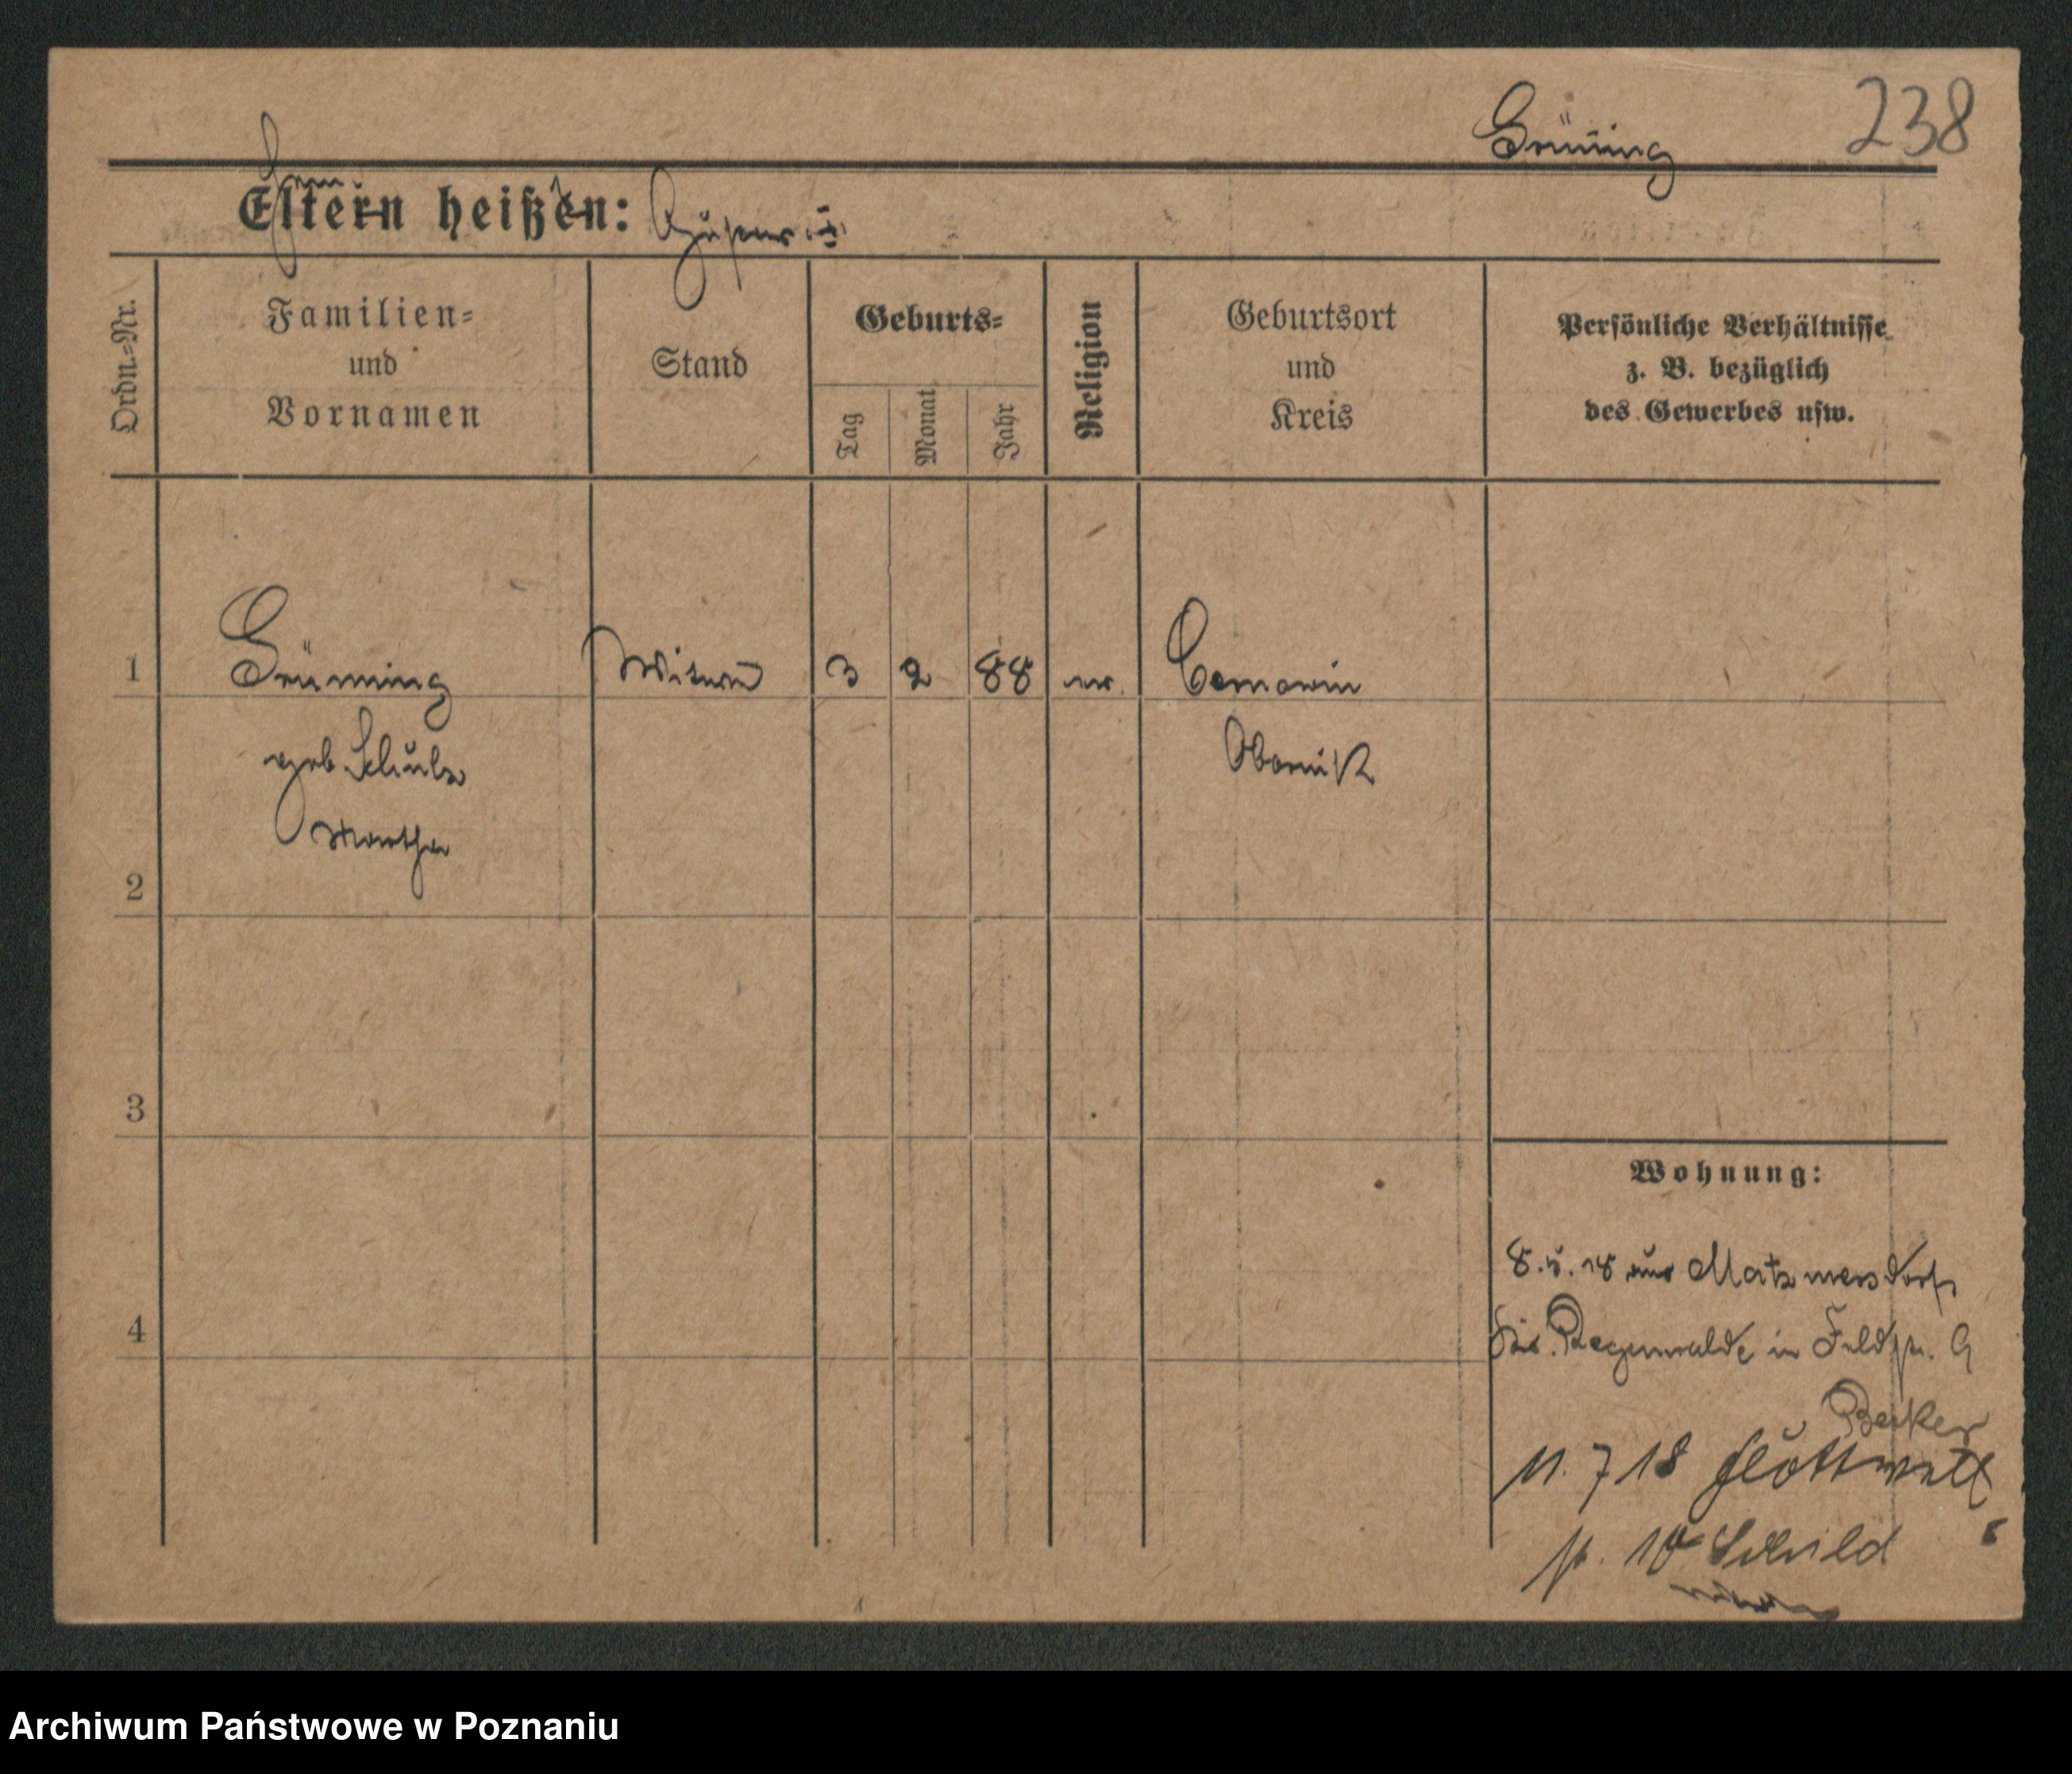 Grüning 238
Eltern heißen:
Ordn.=Nr.
Familien=
und
Vornamen
Stand
Geburts=
Tag
Monat
Jahr
Religion
Geburtsort
und
Kreis
Persönliche Verhältnisse
z. B. bezüglich
des Gewerbes usw.
1 Grünning Witwe 3 2 88 ev. Bomowin
geb. Schulz Obornik
Martha
2
3
4
Wohnung:
8.5.18 aus Matzmersdorf
Krs. Regenwalde in Feldstr. 9
Becker
11. 7 18 Flottwell
st. 10 Schild
Archiwum Państwowe w Poznaniu